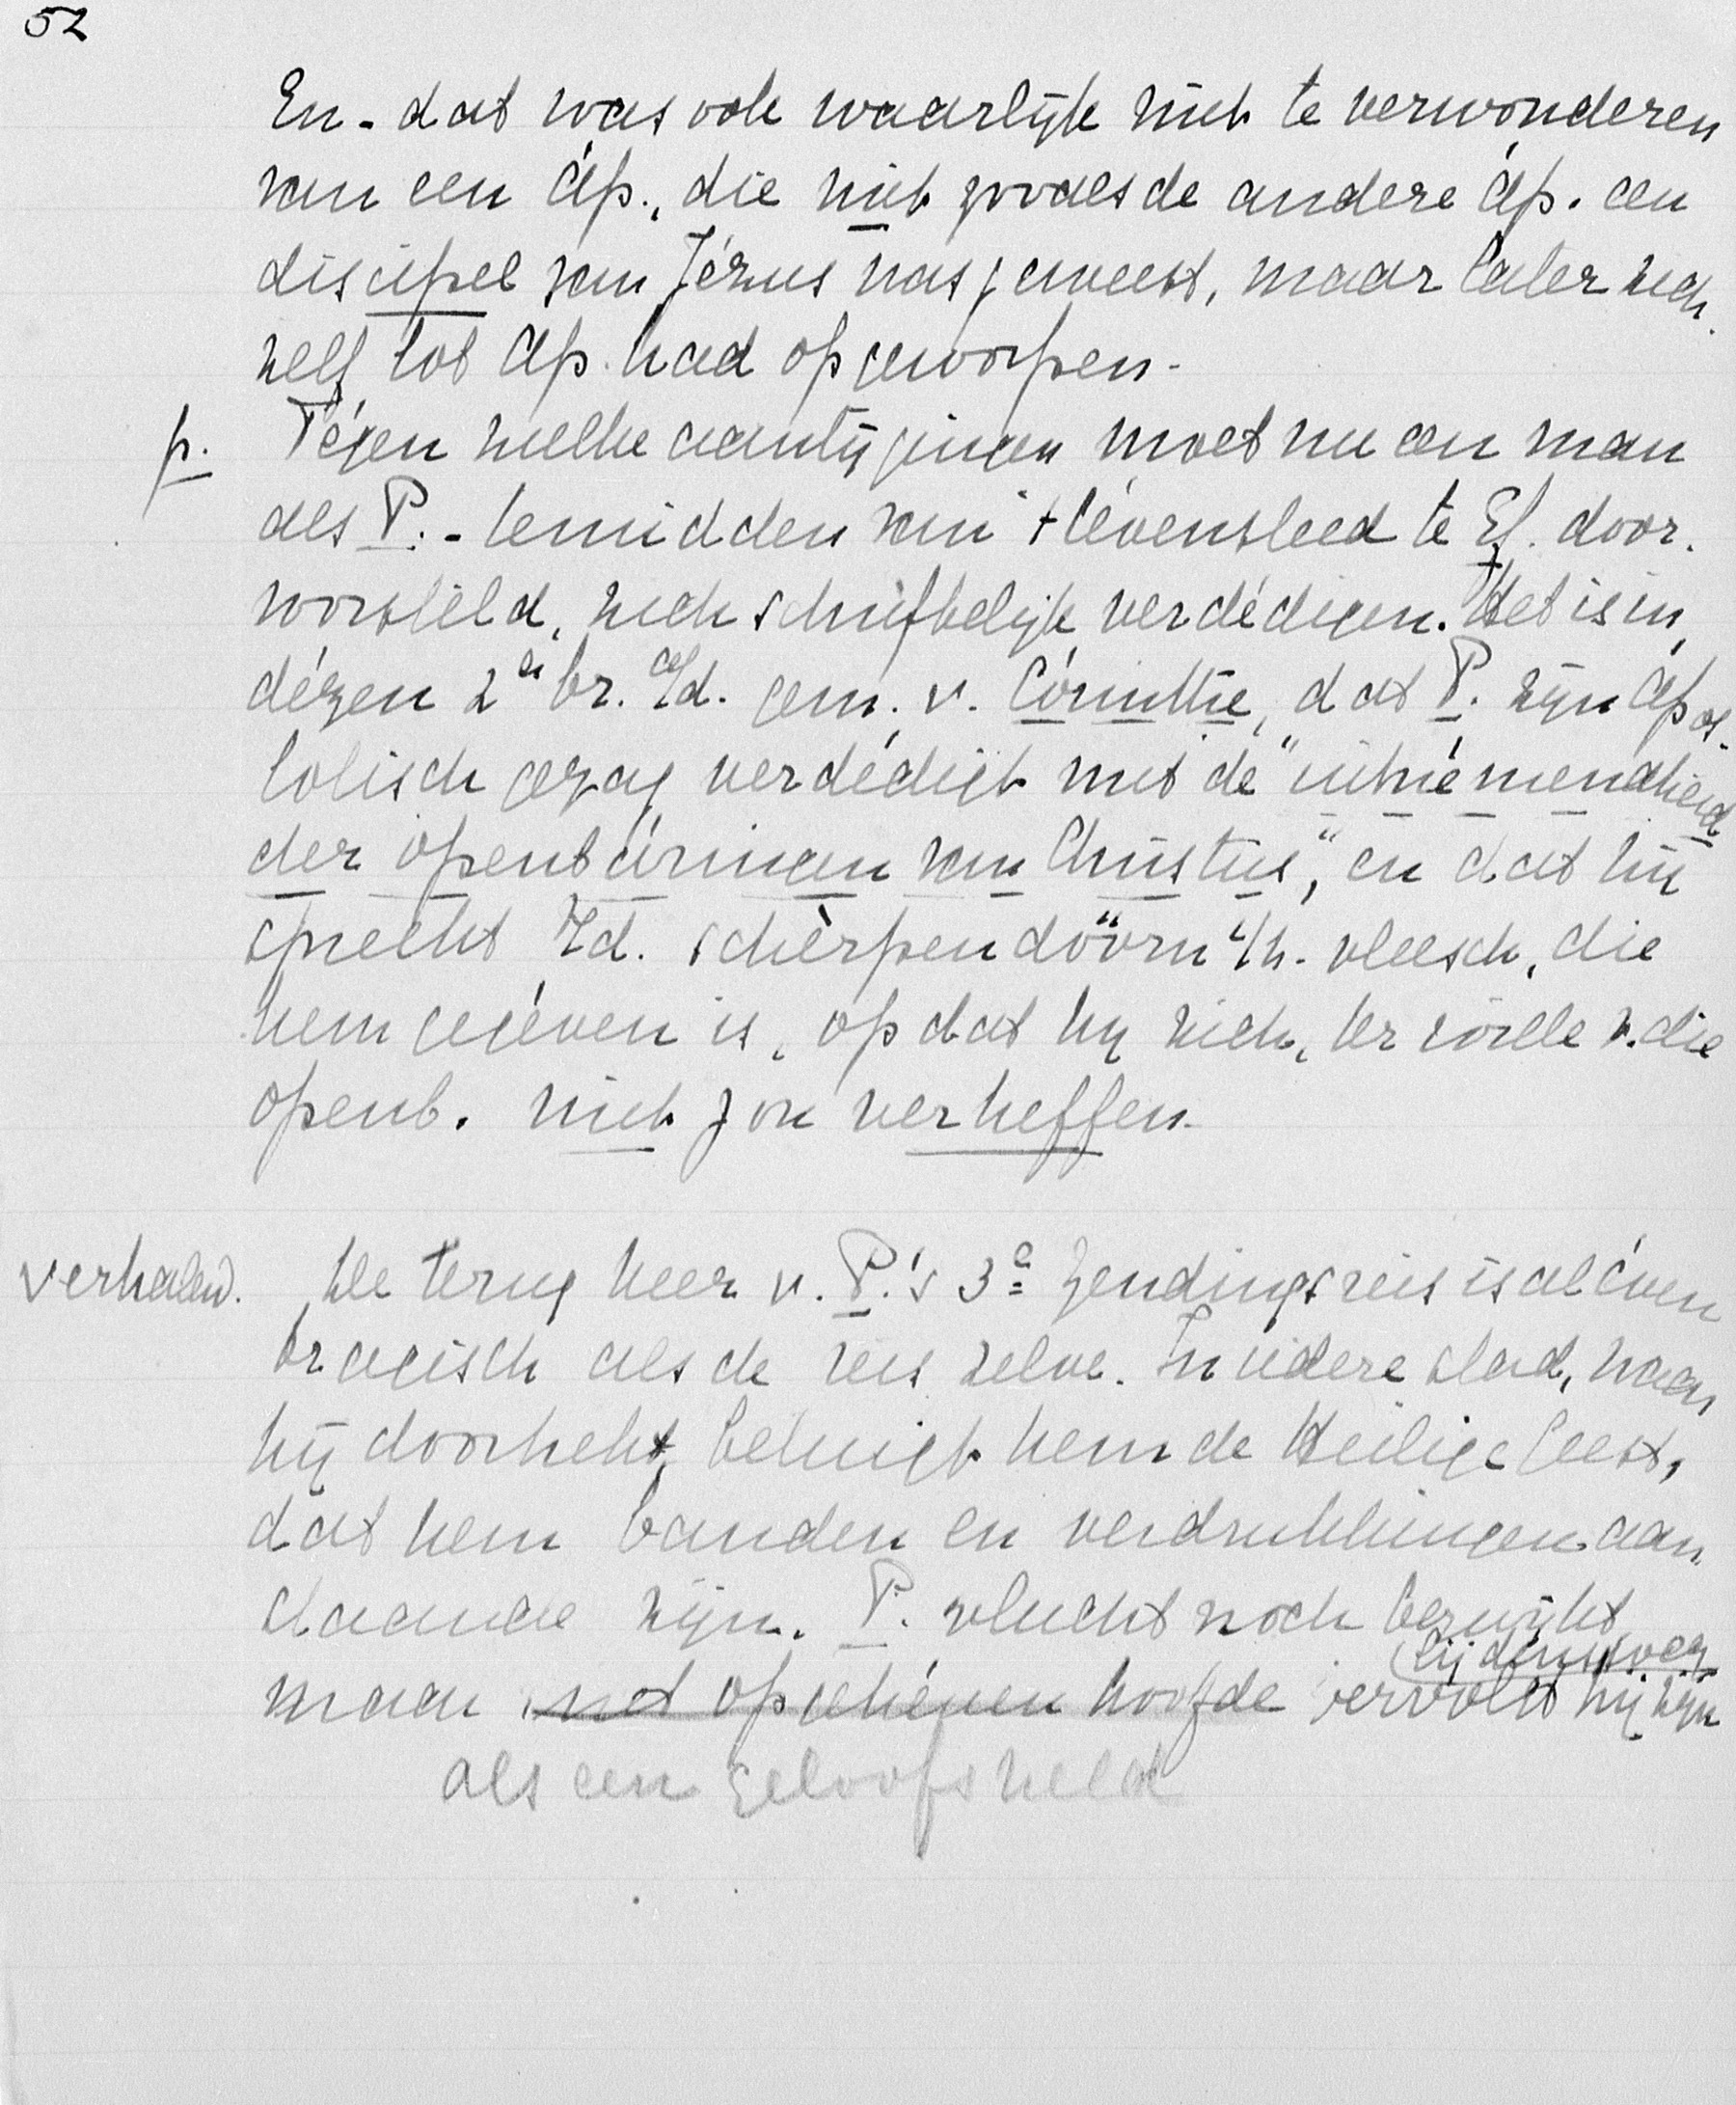 52
En - dat was ook waarlijk niet te verwonderen
van een áp., die niet zooals de andere áp. een
discipel van Jézus was geweest, maar later zich
zelf tot áp. had opgeworpen.
p. Tégen welke aantijgingen moet nu een man
als P. - temidden van 't lévensleed te Ef. door-
worsteld, zich schriftelijk verdédigen. Het is in
dézen 2en br. a/d. gem. v. Córinthe, dat P. zijn ápos-
tolisch gezag verdédigt met de "uitnémendheid
der openbáringen van Christus," en dat hij
spreekt v/d. schèrpen doorn i/h. vleesch, die
hem gegéven is, opdat hij zich, ter wille v. die
openb. niet zou verheffen.
verhalend. De terugkeer v. P.'s 3e zendingsreis is al éven
tragisch als de reis zelve. In iedere stad, waar
hij doortrekt, betuigt hem de Heilige Geest,
dat hem banden en verdrukkingen aan-
staande zijn. P. vlucht noch bezwijkt
lijdensweg
maar met opgehéven hoofde vervolgt hij zijn
als een geloofsheld